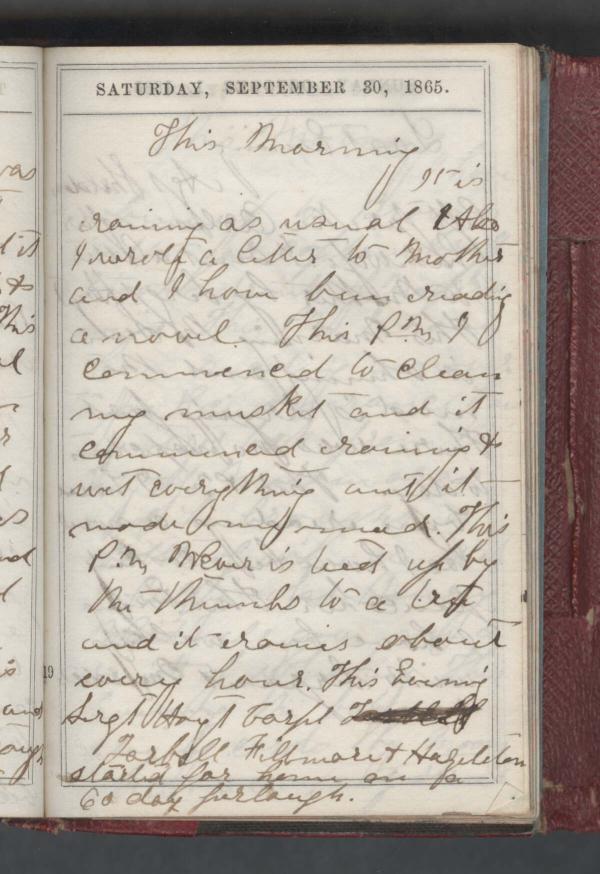 SATURDAY, SEPTEMBER 30, 1865.
This Morning
It is
raining as usual Also
I wrote a letter to Mother
and I have been reading
a novel. This P.M. I
commenced to clean
my musket and it
commenced raining &
wet everything and it
made me mad. This
P.M. is tied up by
the thumbs to a tree
and it rains about
every hour. This Evening
Sergt Hoyt Corpl
Tarbell Fillmore & Hazelton
started for home on a
60 day furlough.
19